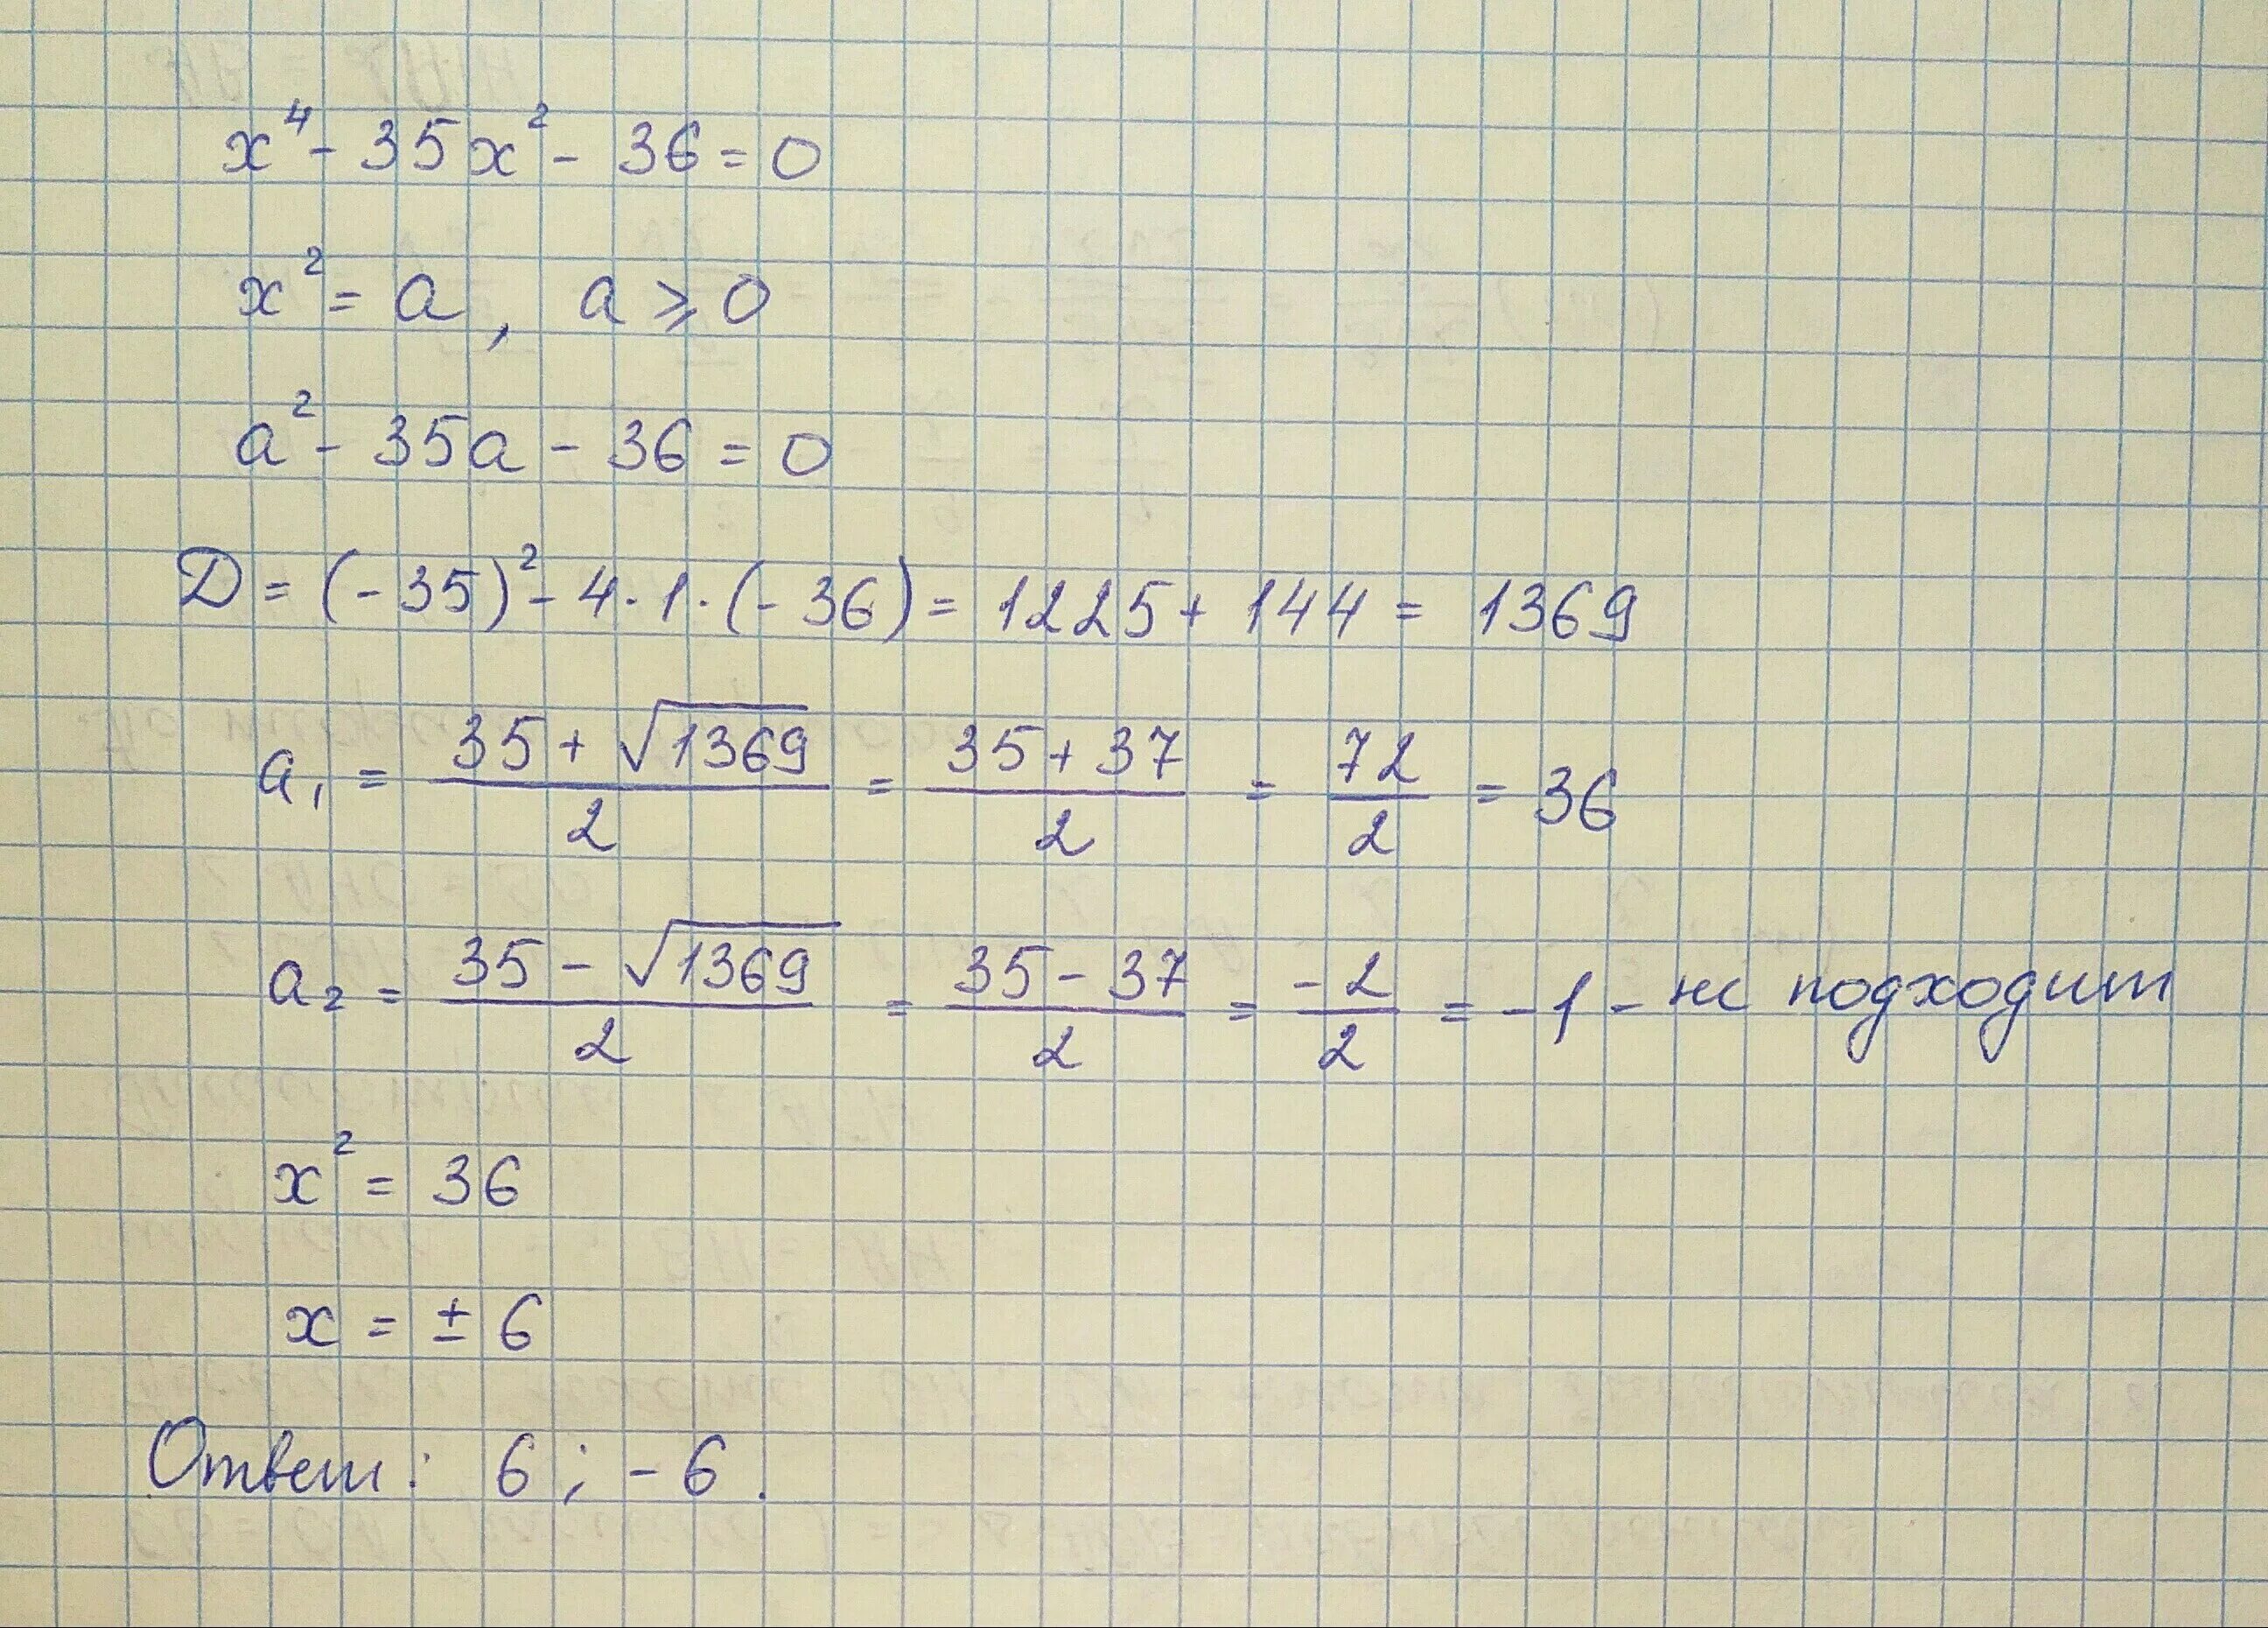 x⁴ - 35x² - 36 = 0
x² = a, a ⩾ 0
a² - 35a - 36 = 0
Д = (-35)² - 4·1·(-36) = 1225 + 144 = 1369
a₁ = (35 + √1369)/2 = (35 + 37)/2 = 72/2 = 36
a₂ = (35 - √1369)/2 = (35 - 37)/2 = -2/2 = -1 - не подходит
x² = 36
x = ± 6
Ответ: 6; -6.